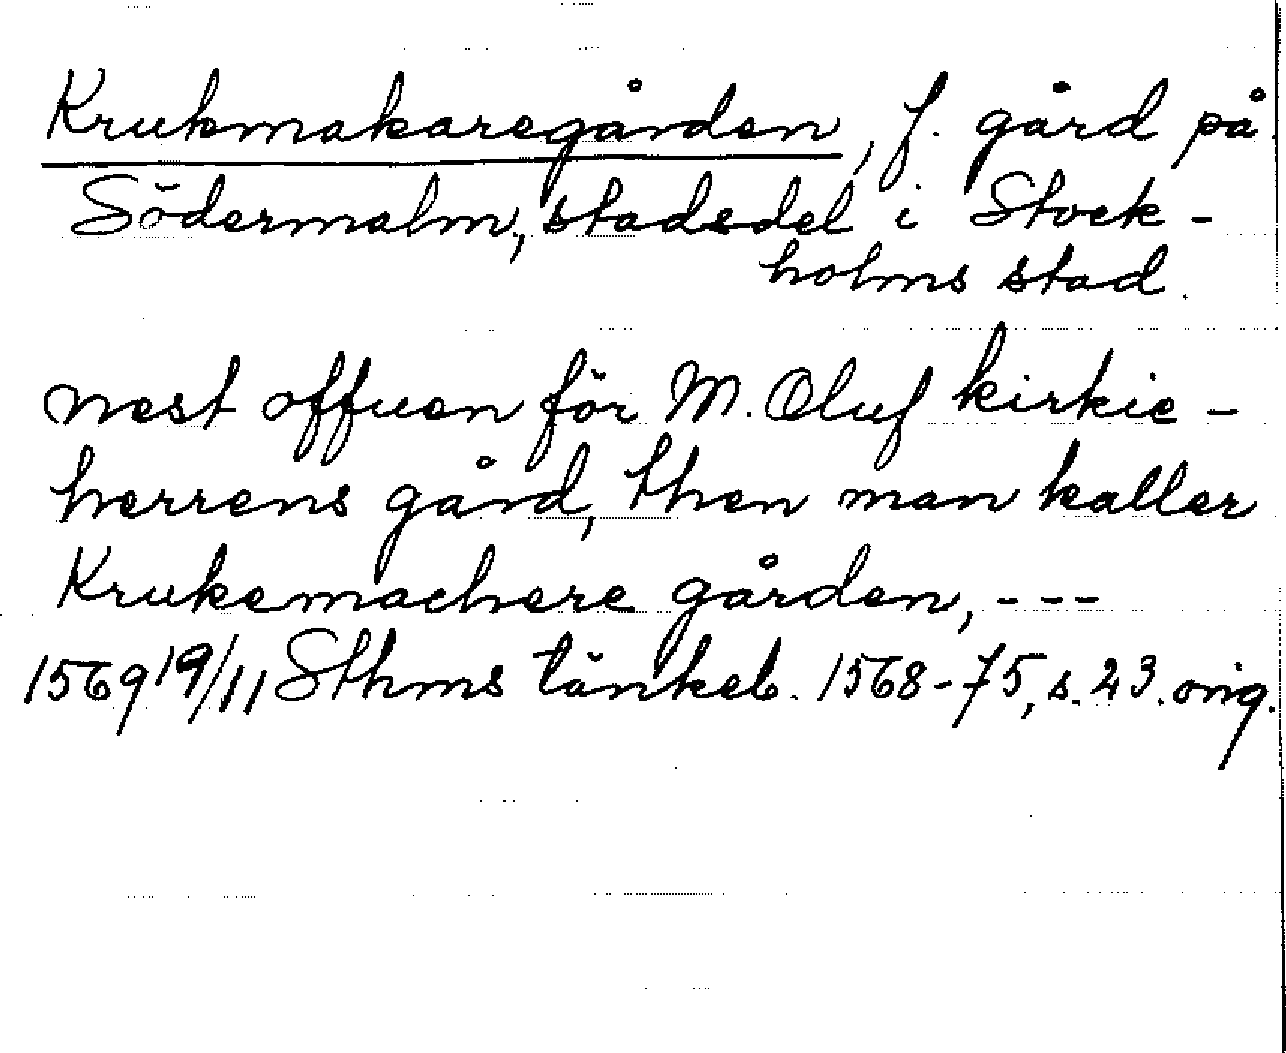 Krukmakaregården, f. gård på
Södermalm, stadsdel i Stock-
holms stad.
nest offuen för M. Oluf kirkie-
herrens gård, then man kaller
Krukemachere gården, ---
1569 19/11 Sthms tänkeb. 1568-75, s. 23. orig.